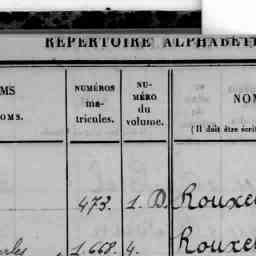 REPERTOIRE ALPHABETI
MS
OMS.
NUMÉROS
ma-
tricules.
NU-
MÉRO
du
volume.
NOM
(Il doit être écri
473. 1. D. Rouxe
rles 1.668. 4. Rouxe